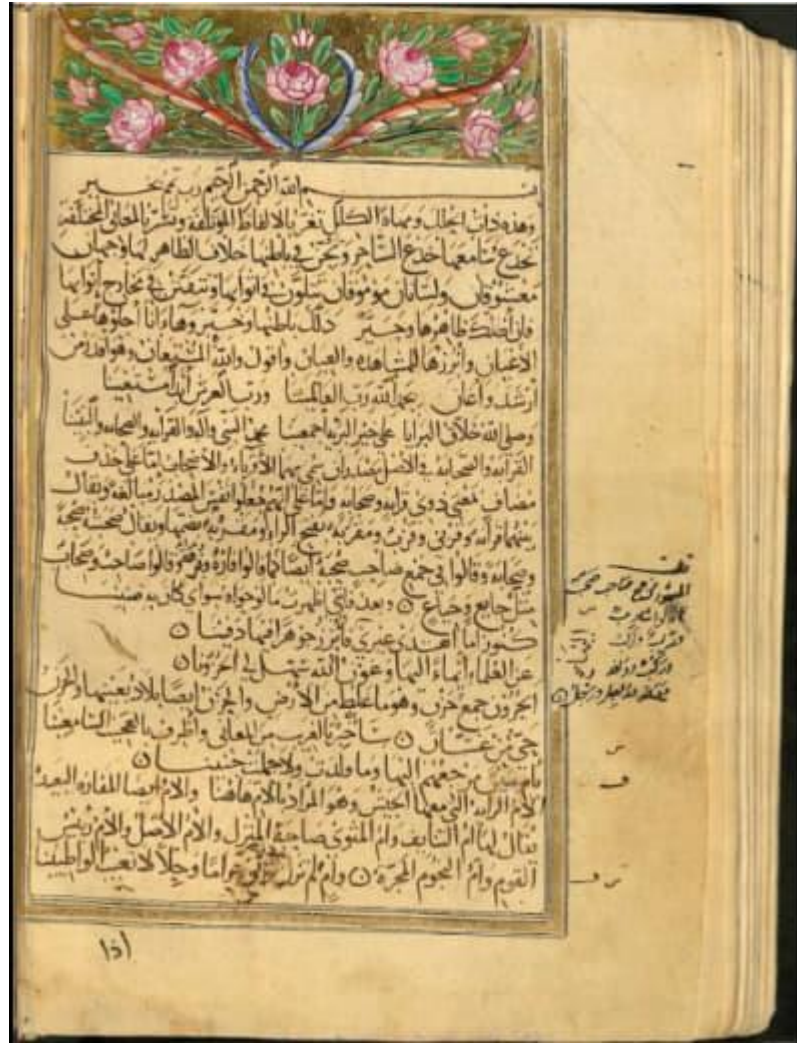 بسم الله الرحمن الرحيم رب تمم بخير
وهذه ذات الحلل ومهاة الكلل تغر بالالفاظ المؤتلفة وتشر بالمعاني المختلفة
تخدع سامعها خدع الساحر وتجن في باطنها خلاف الظاهر لها وجهان
معشوقان ولسانان موموقان يتلون في اثوابها وتتفنن في مخارج ابوابها
فان اضلك ظاهرها وحير دلك باطنها وخبر وها انا اجلوها على
الاعيان وابرزها للمشاهدة والعيان واقول والله المستعان وهو اقدر من
ارشد واعان بحمد الله رب العالمينا ورب العرش ابدأ مستعينا
وصلى الله خلاق البرايا على خير البرية اجمعينا محمد النبي وآله والقرابة والصحابة
القرابة والصحابة في الاصل مصدران سمي بهما الاقرباء والاصحاب اما على حذف
مضاف بمعنى ذوي قرابة وصحابة واما على انهم جعلوا نفس المصدر مبالغة ويقال
بينهما قرابة وقربى وقرب ومقربة بفتح الراء ومقربة بضمها ويقال صحبه صحبة
وصحابة وقالوا في جمع صاحب صحبة ايضا كما قالوا فاره وفرهة وقالوا صاحب وصحاب
مثل جايع وجياع وبعد فانني اظهرت مالو حواه سواي كان به ضنينا
كنوز اما اهتدى غيري فابرز جوهرا فيها دفينا
عن العلماء ايماء اليها وعون الله سهل لي الحزونا
الحزون جمع حزن وهو ما غلظ من الارض والحزن ايضا بلاد بعينها والحزن
حي من غسان سأخبر بالغريب من المعاني واظرف بالعجيب السامعينا
بام بنين مرجعهم اليها وما ولدت ولا حملت جنينا
الام الراية التي معها الجيش وهو المراد بالام هاهنا والام ايضا المفازة البعيدة
يقال لها ام التنايف وام المثوى صاحبة المنزل والام الاصل والام رئيس
القوم وام النجوم المجرة وام لم تزل تؤتى حراما وحلا لا تعيب الواطئينا
اذا